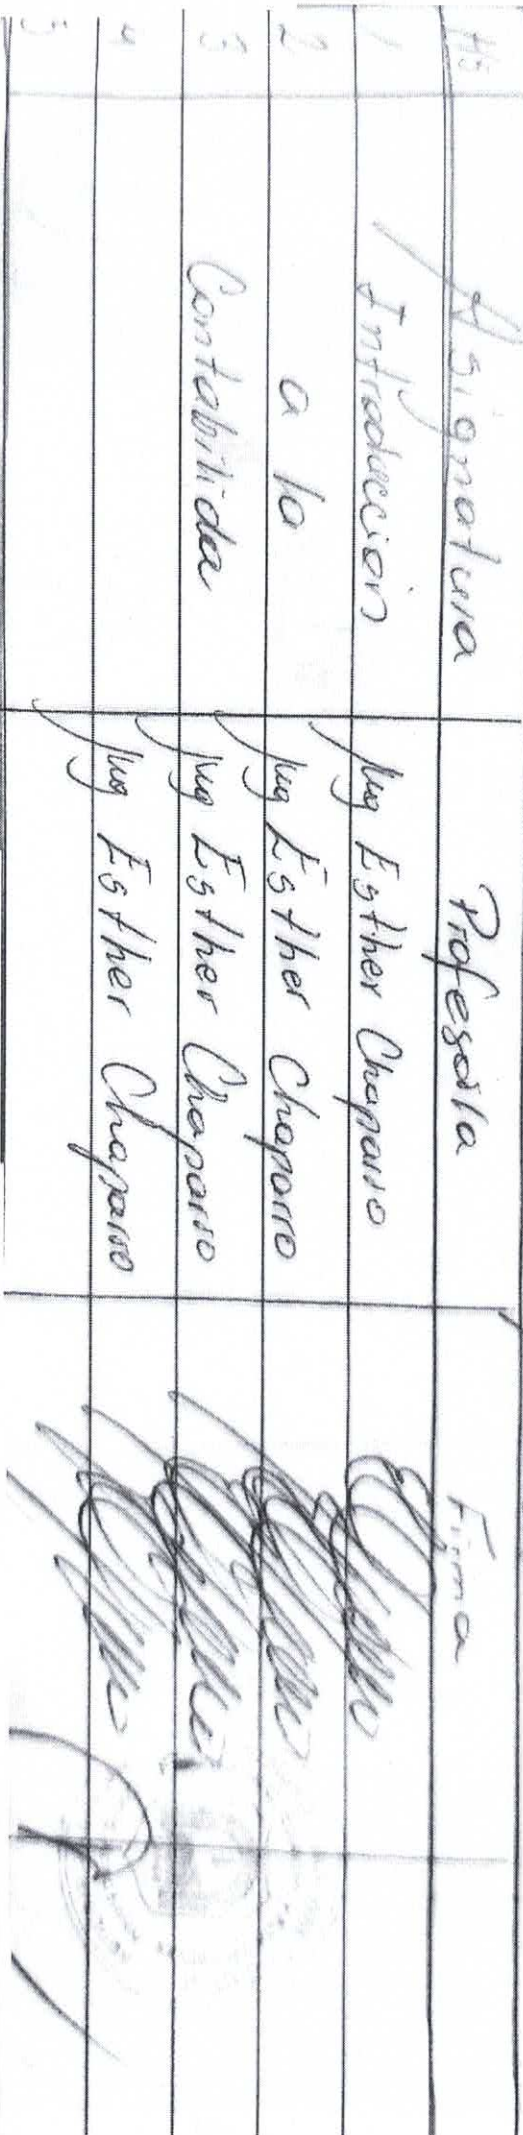 Hs Asignatura Profesor/a Firma
1 Introduccion Mg Esther Chaparro
2 a la Mg Esther Chaparro
3 Contabilida Mg Esther Chaparro
4 Mg Esther Chaparro
5